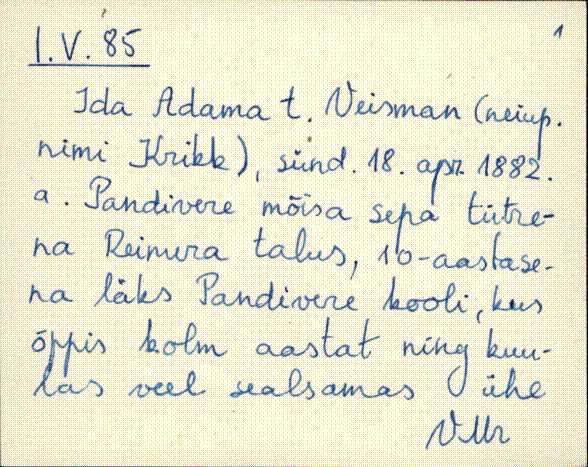 1
I.V.85
Ida Adama t. Veisman (neiup.
nimi Krikk), sünd. 18. apr. 1882.
a. Pandivere mõisa sepa tütre-
na Reinura talus, 10-aastase-
na läks Pandivere kooli, kus
õppis kolm aastat ning kuu-
las veel sealsamas ühe